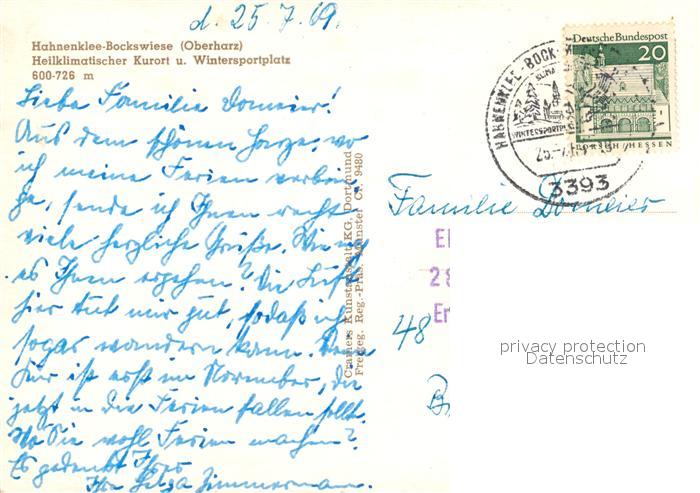 d. 25.7.69.
Hahnenklee-Bockswiese (Oberharz)
Heilklimatischer Kurort u. Wintersportplatz
600-726 m
Liebe Familie Domeier!
Aus dem schönen Harze, wo
ich meine Ferien verbrin-
ge, sende ich Ihnen recht
viele herzliche Grüße. Wie mag
es Ihnen ergehen? Die Luft
hier tut mir gut, sodaß ich
sogar wandern kann. Meine
Kur ist erst im November, die
jetzt in die Ferien fallen sollte.
Wo Sie wohl Ferien machen?
Es gedenkt Ihrer
Ihre Zimmermann.
Cramers Kunstanstalt KG, Dortmund
Freigeg. Reg.-Präs. Münster Cr. 9480
Deutsche Bundespost
20
LORSCH/HESSEN
HAHNENKLEE-BOCK
WINTERSPORTPL
3393
Familie Domeier
El
28
Er
48
B
privacy protection
Datenschutz